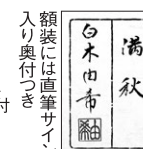 満秋
白木由希
額装には直筆サイン
入り奥付つき
付